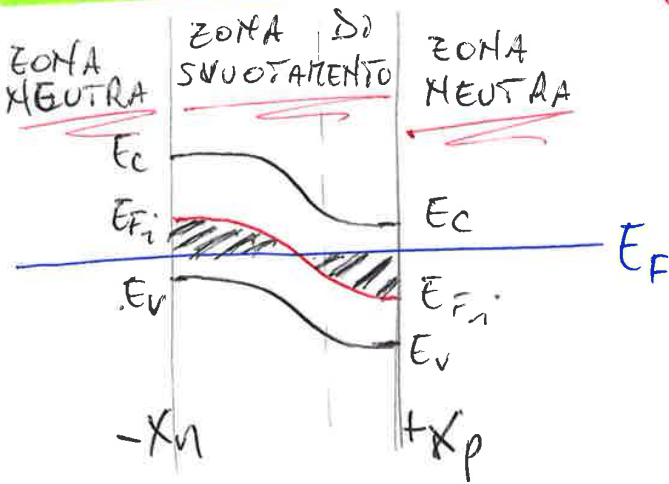 ZONA NEUTRA
ZONA DI SVUOTAMENTO
ZONA NEUTRA
Ec
EFi
Ev
Ec
EF
EFi
Ev
-Xn
+Xp